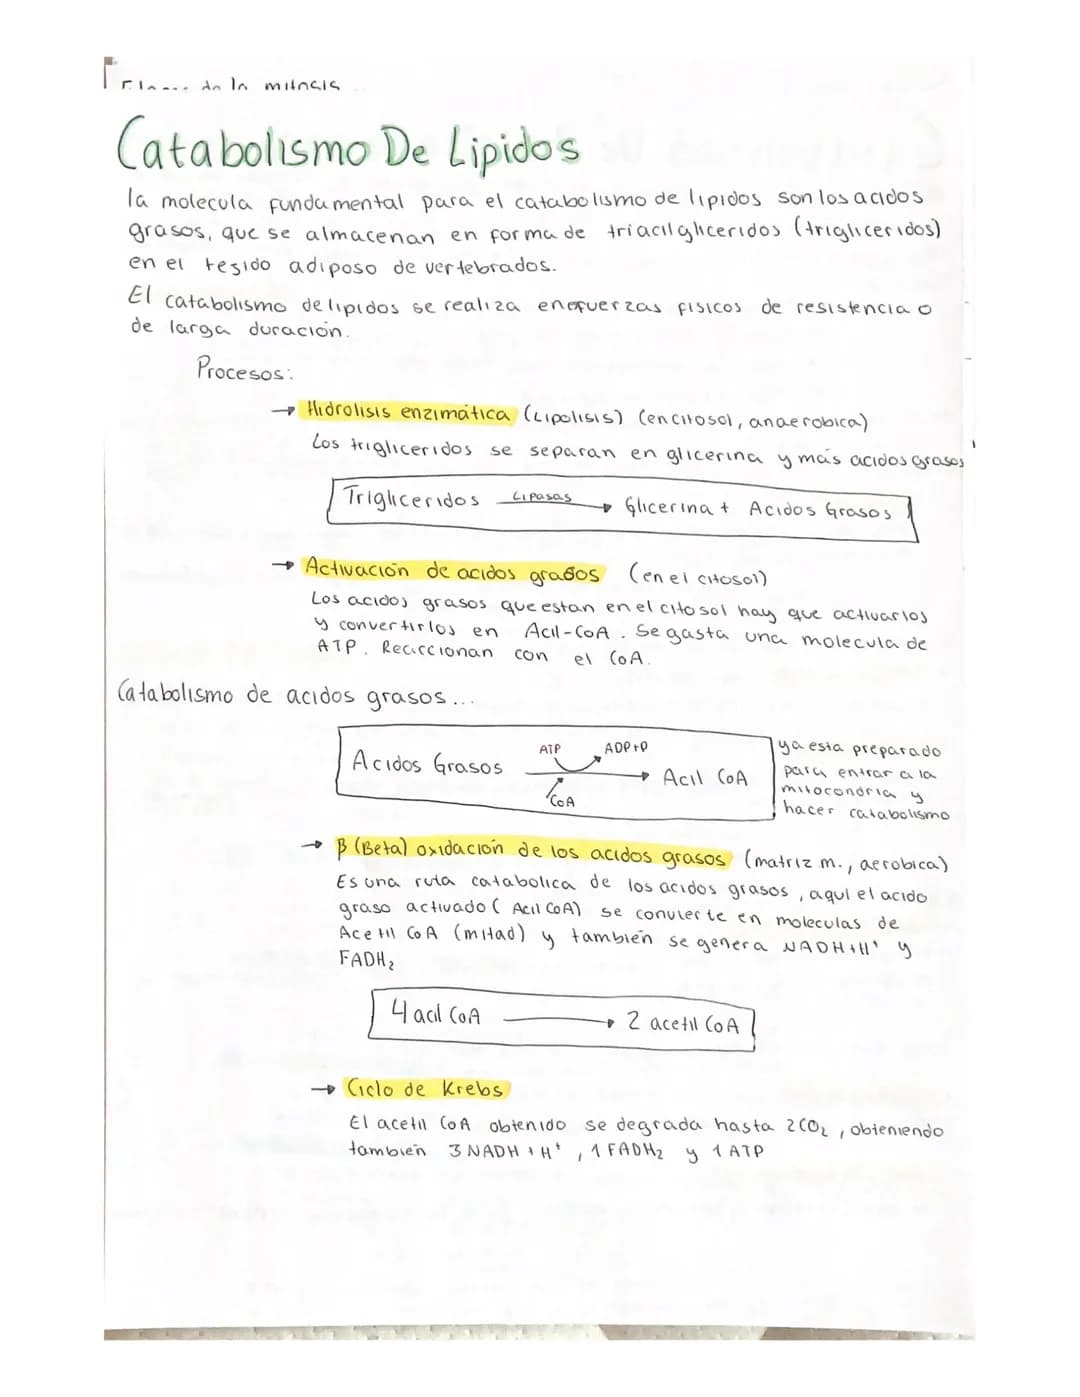 de la mitosis
Catabolismo De Lipidos
la molecula fundamental para el catabolismo de lipidos son los acidos
grasos, que se almacenan en forma de triacilgliceridos (trigliceridos)
en el tesido adiposo de vertebrados.
El catabolismo de lipidos se realiza en esfuerzas fisicos de resistencia o
de larga duración.
Procesos:
→ Hidrolisis enzimática (Lipolisis) (en citosol, anaerobica)
Los trigliceridos se separan en glicerina y más acidos grasos
Trigliceridos Lipasas → Glicerina + Acidos Grasos
→ Activación de acidos grasos (en el citosol)
Los acidos grasos que estan en el citosol hay que activarlos
y convertirlos en Acil-CoA. Se gasta una molecula de
ATP. Reaccionan con el CoA.
Catabolismo de acidos grasos...
Acidos Grasos ATP ADP+P CoA → Acil CoA
ya esta preparado
para entrar a la
mitocondria y
hacer catabolismo
→ β (Beta) oxidación de los acidos grasos (matriz m., aerobica)
Es una ruta catabolica de los acidos grasos, aqui el acido
graso activado (Acil CoA) se convierte en moleculas de
Acetil CoA (mitad) y también se genera NADH+H⁺ y
FADH₂
4 acil CoA → 2 acetil CoA
→ Ciclo de Krebs
El acetil CoA obtenido se degrada hasta 2CO₂, obteniendo
también 3 NADH + H⁺, 1 FADH₂ y 1 ATP